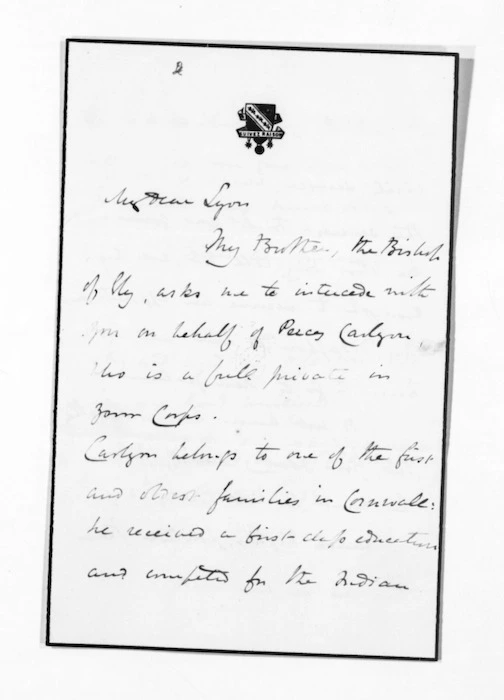 My Dear Lyon
My Brother, the Bishop
of Ely, asks me to intercede with
you on behalf of Percy Carlyon
who is a full private in
your Corps.
Carlyon belongs to one of the first
and oldest families in Cornwall:
he received a first class education
and competed for the Indian